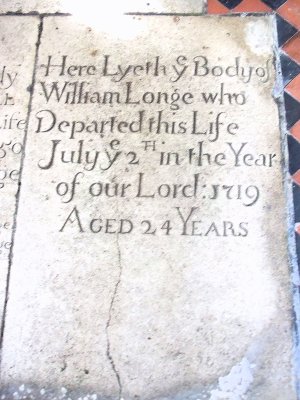 Here Lyeth yͤ Body of
William Longe who
Departed this Life
July yͤ 2ᵀᴴ in the Year
of our Lord: 1719
AGED 24 YEARS
Life
50